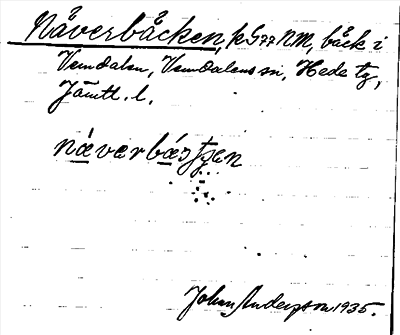 Nåverbåcken, k G77 NM, båck i
Vemdalen, Vemdalens sn, Hede tg,
Jämtl. l.
Johan Anderson 1935.